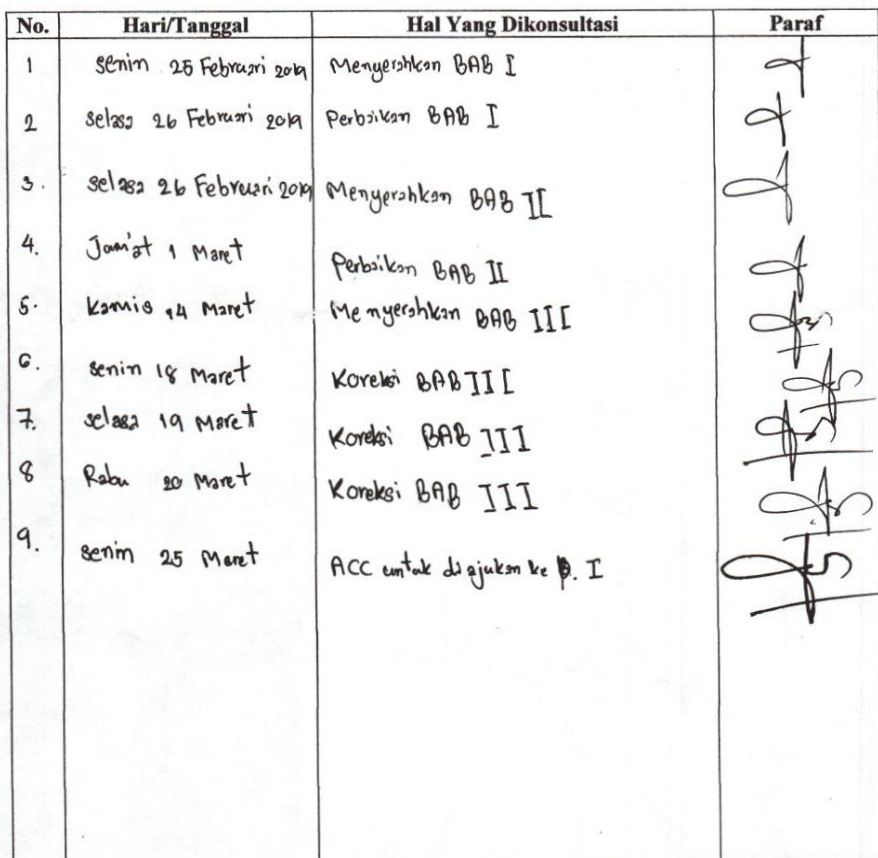 No. Hari/Tanggal Hal Yang Dikonsultasi Paraf
1 Senin 25 Februari 2019 Menyerahkan BAB I
2 Selasa 26 Februari 2019 Perbaikan BAB I
3. Selasa 26 Februari 2019 Menyerahkan BAB II
4. Jum'at 1 Maret Perbaikan BAB II
5. Kamis 14 Maret Menyerahkan BAB III
6. Senin 18 Maret Koreksi BAB III
7. Selasa 19 Maret Koreksi BAB III
8 Rabu 20 Maret Koreksi BAB III
9. Senin 25 Maret ACC untuk diajukan ke P. I